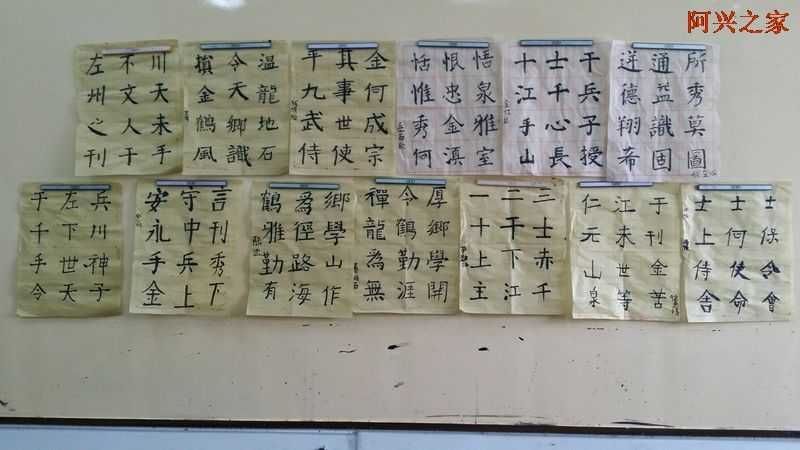 阿兴之家
川天未手
不文人干
左州之刊
温龍地石
令天鄉識
金鶴風
金何成宗
其事世使
平九武侍
悟泉雅室
恨忠金滇
恬惟秀何
干兵子授
士千心長
十江手山
所秀莫圖
通益識固
德翔希
兵川神子
左下世天
于千手令
言刊秀下
守中兵上
安永手金
鄉學山作
為徑路海
鶴雅勤有
厚鄉學開
令鶴勤涯
禪龍為無
三士赤千
二干下江
一十上主
于刊金苦
江未世等
仁元山泉
士保令會
士何使命
士上侍舍